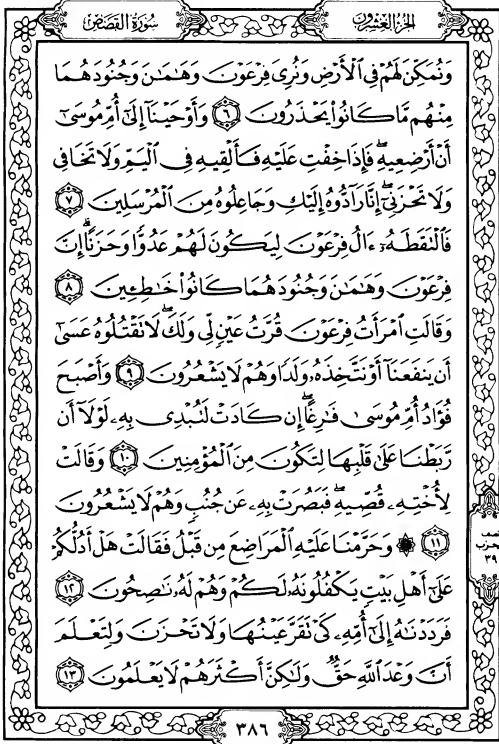 الجزء العشرون
سورة القصص
وَنُمَكِّنَ لَهُمْ فِي الْأَرْضِ وَنُرِيَ فِرْعَوْنَ وَهَامَانَ وَجُنُودَهُمَا
مِنْهُم مَّا كَانُوا۟ يَحْذَرُونَ ۝٦ وَأَوْحَيْنَآ إِلَىٰٓ أُمِّ مُوسَىٰٓ
أَنْ أَرْضِعِيهِ ۖ فَإِذَا خِفْتِ عَلَيْهِ فَأَلْقِيهِ فِي الْيَمِّ وَلَا تَخَافِي
وَلَا تَحْزَنِيٓ ۖ إِنَّا رَآدُّوهُ إِلَيْكِ وَجَاعِلُوهُ مِنَ الْمُرْسَلِينَ ۝٧
فَالْتَقَطَهُۥٓ ءَالُ فِرْعَوْنَ لِيَكُونَ لَهُمْ عَدُوًّا وَحَزَنًا ۗ إِنَّ
فِرْعَوْنَ وَهَٰمَٰنَ وَجُنُودَهُمَا كَانُوا۟ خَٰطِـِٔينَ ۝٨
وَقَالَتِ امْرَأَتُ فِرْعَوْنَ قُرَّتُ عَيْنٍ لِّي وَلَكَ ۖ لَا تَقْتُلُوهُ عَسَىٰٓ
أَن يَنفَعَنَآ أَوْ نَتَّخِذَهُۥ وَلَدًا وَهُمْ لَا يَشْعُرُونَ ۝٩ وَأَصْبَحَ
فُؤَادُ أُمِّ مُوسَىٰ فَٰرِغًا ۖ إِن كَادَتْ لَتُبْدِي بِهِۦ لَوْلَآ أَن
رَّبَطْنَا عَلَىٰ قَلْبِهَا لِتَكُونَ مِنَ الْمُؤْمِنِينَ ۝١٠ وَقَالَتْ
لِأُخْتِهِۦ قُصِّيهِ ۖ فَبَصُرَتْ بِهِۦ عَن جُنُبٍ وَهُمْ لَا يَشْعُرُونَ
۝١١ ۞ وَحَرَّمْنَا عَلَيْهِ الْمَرَاضِعَ مِن قَبْلُ فَقَالَتْ هَلْ أَدُلُّكُمْ
نصف
الحزب
٣٩
عَلَىٰٓ أَهْلِ بَيْتٍ يَكْفُلُونَهُۥ لَكُمْ وَهُمْ لَهُۥ نَٰصِحُونَ ۝١٢
فَرَدَدْنَٰهُ إِلَىٰٓ أُمِّهِۦ كَيْ تَقَرَّ عَيْنُهَا وَلَا تَحْزَنَ وَلِتَعْلَمَ
أَنَّ وَعْدَ اللَّهِ حَقٌّ وَلَٰكِنَّ أَكْثَرَهُمْ لَا يَعْلَمُونَ ۝١٣
٣٨٦